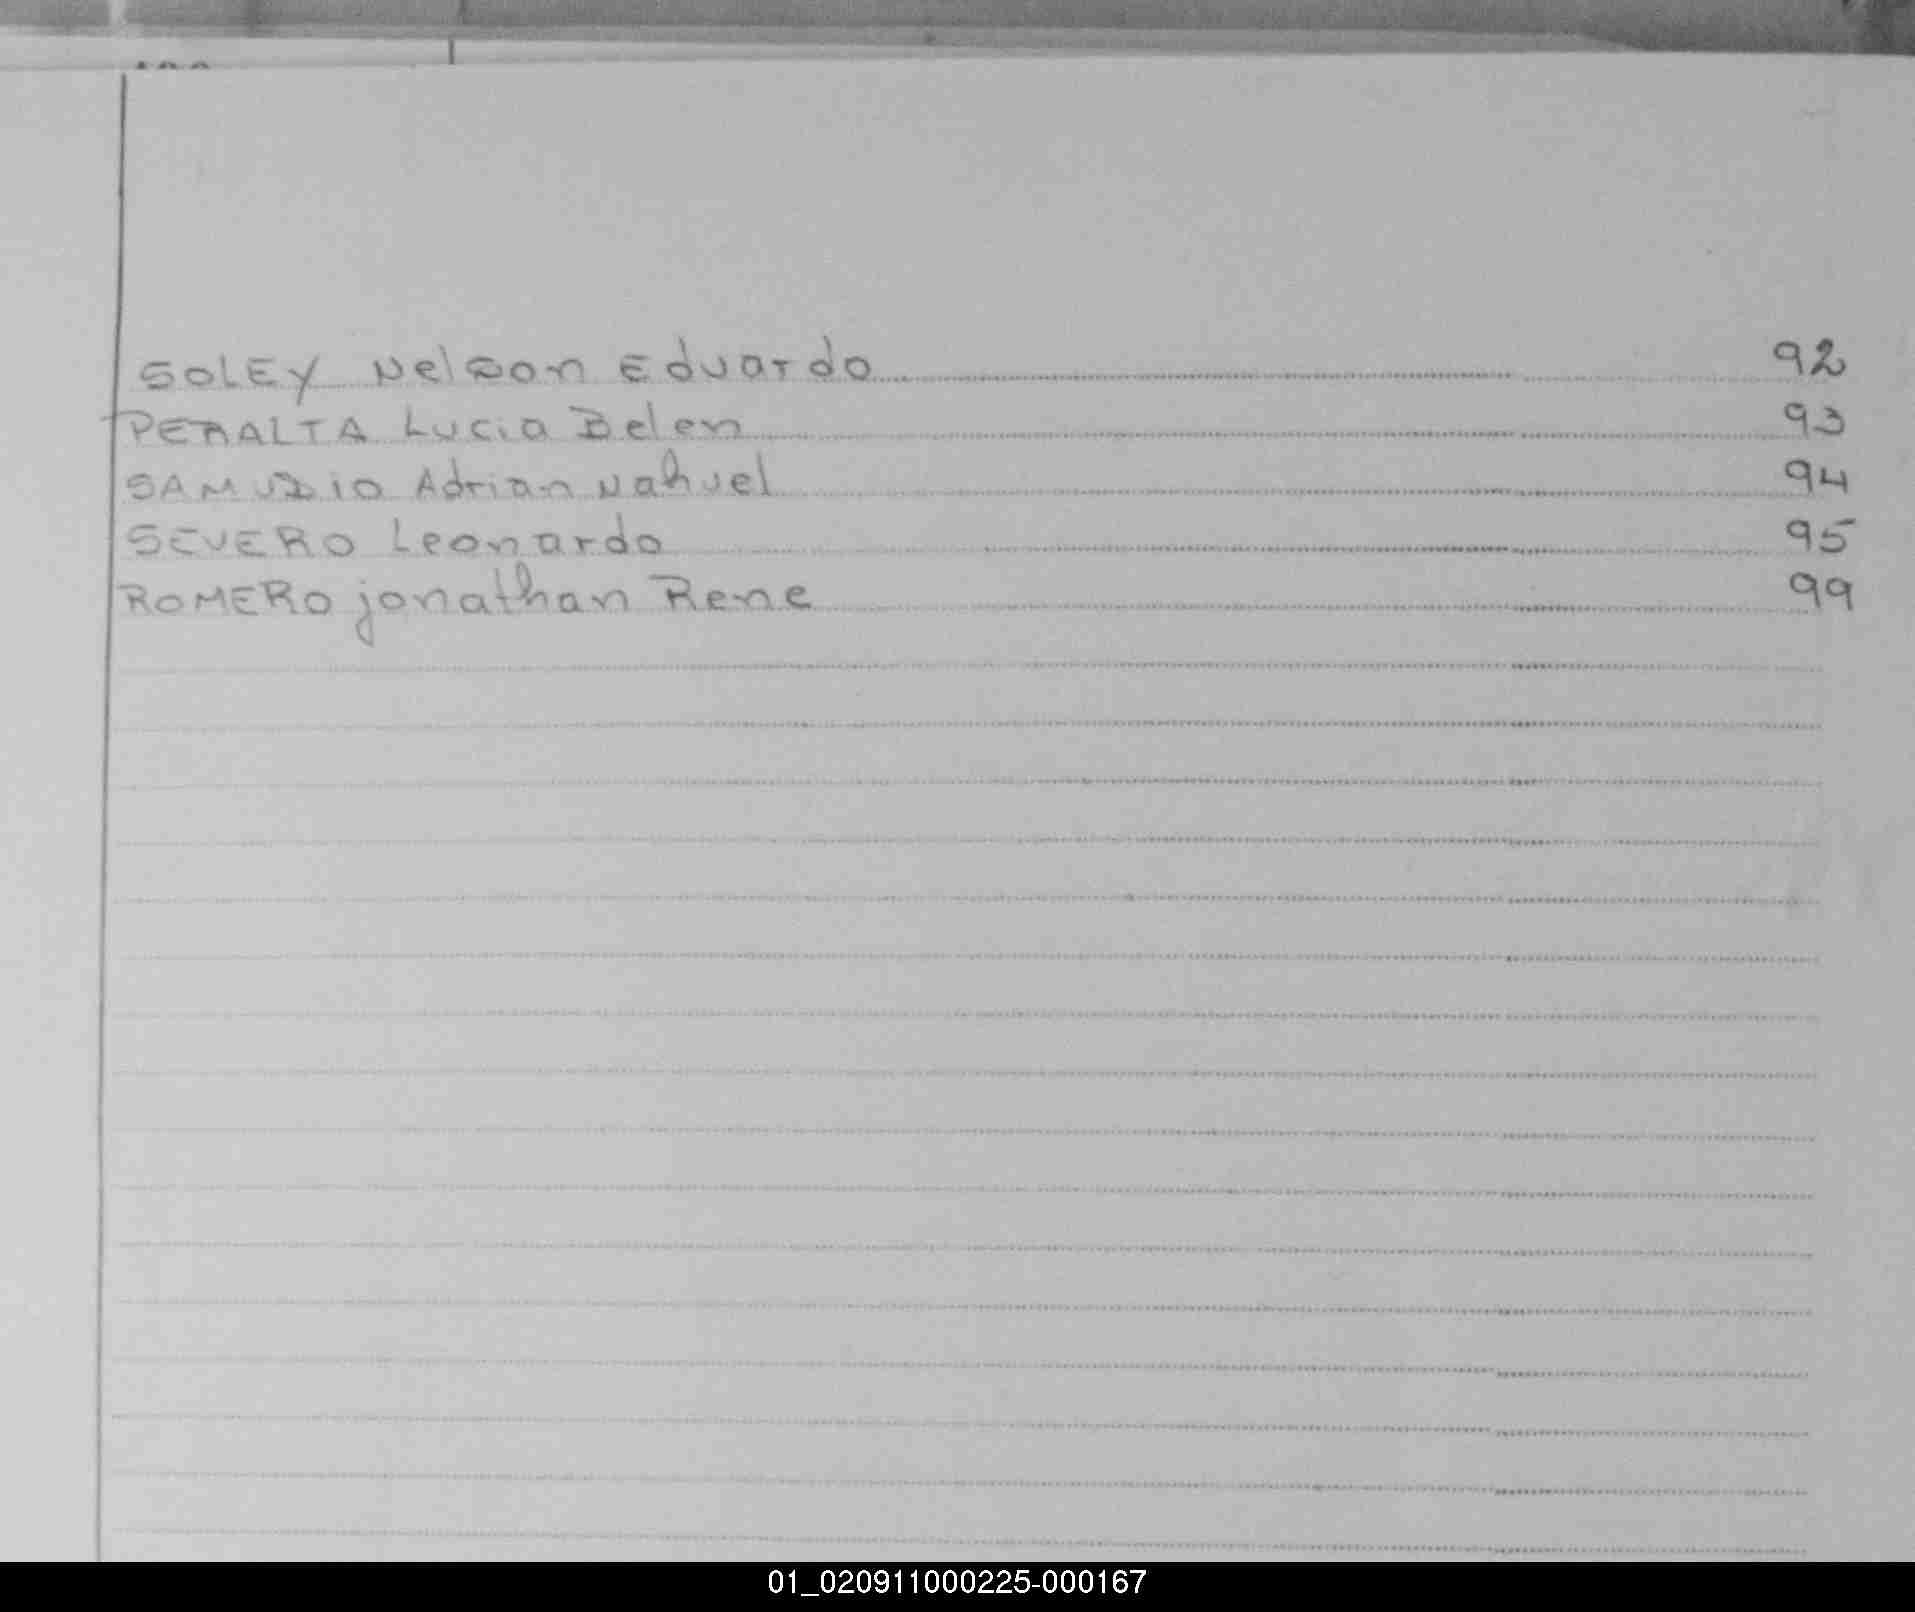 SOLEY Nelson Eduardo 92
PERALTA Lucia Belen 93
SAMUDIO Adrian Nahuel 94
SEVERO Leonardo 95
ROMERO jonathan Rene 99
01_020911000225-000167